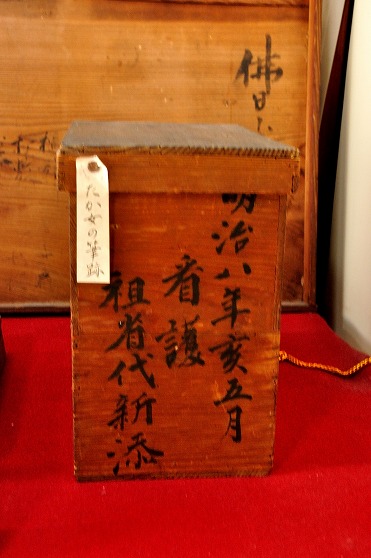 明治八年亥五月
看護
祖省代新添
たか女の筆跡
佛日